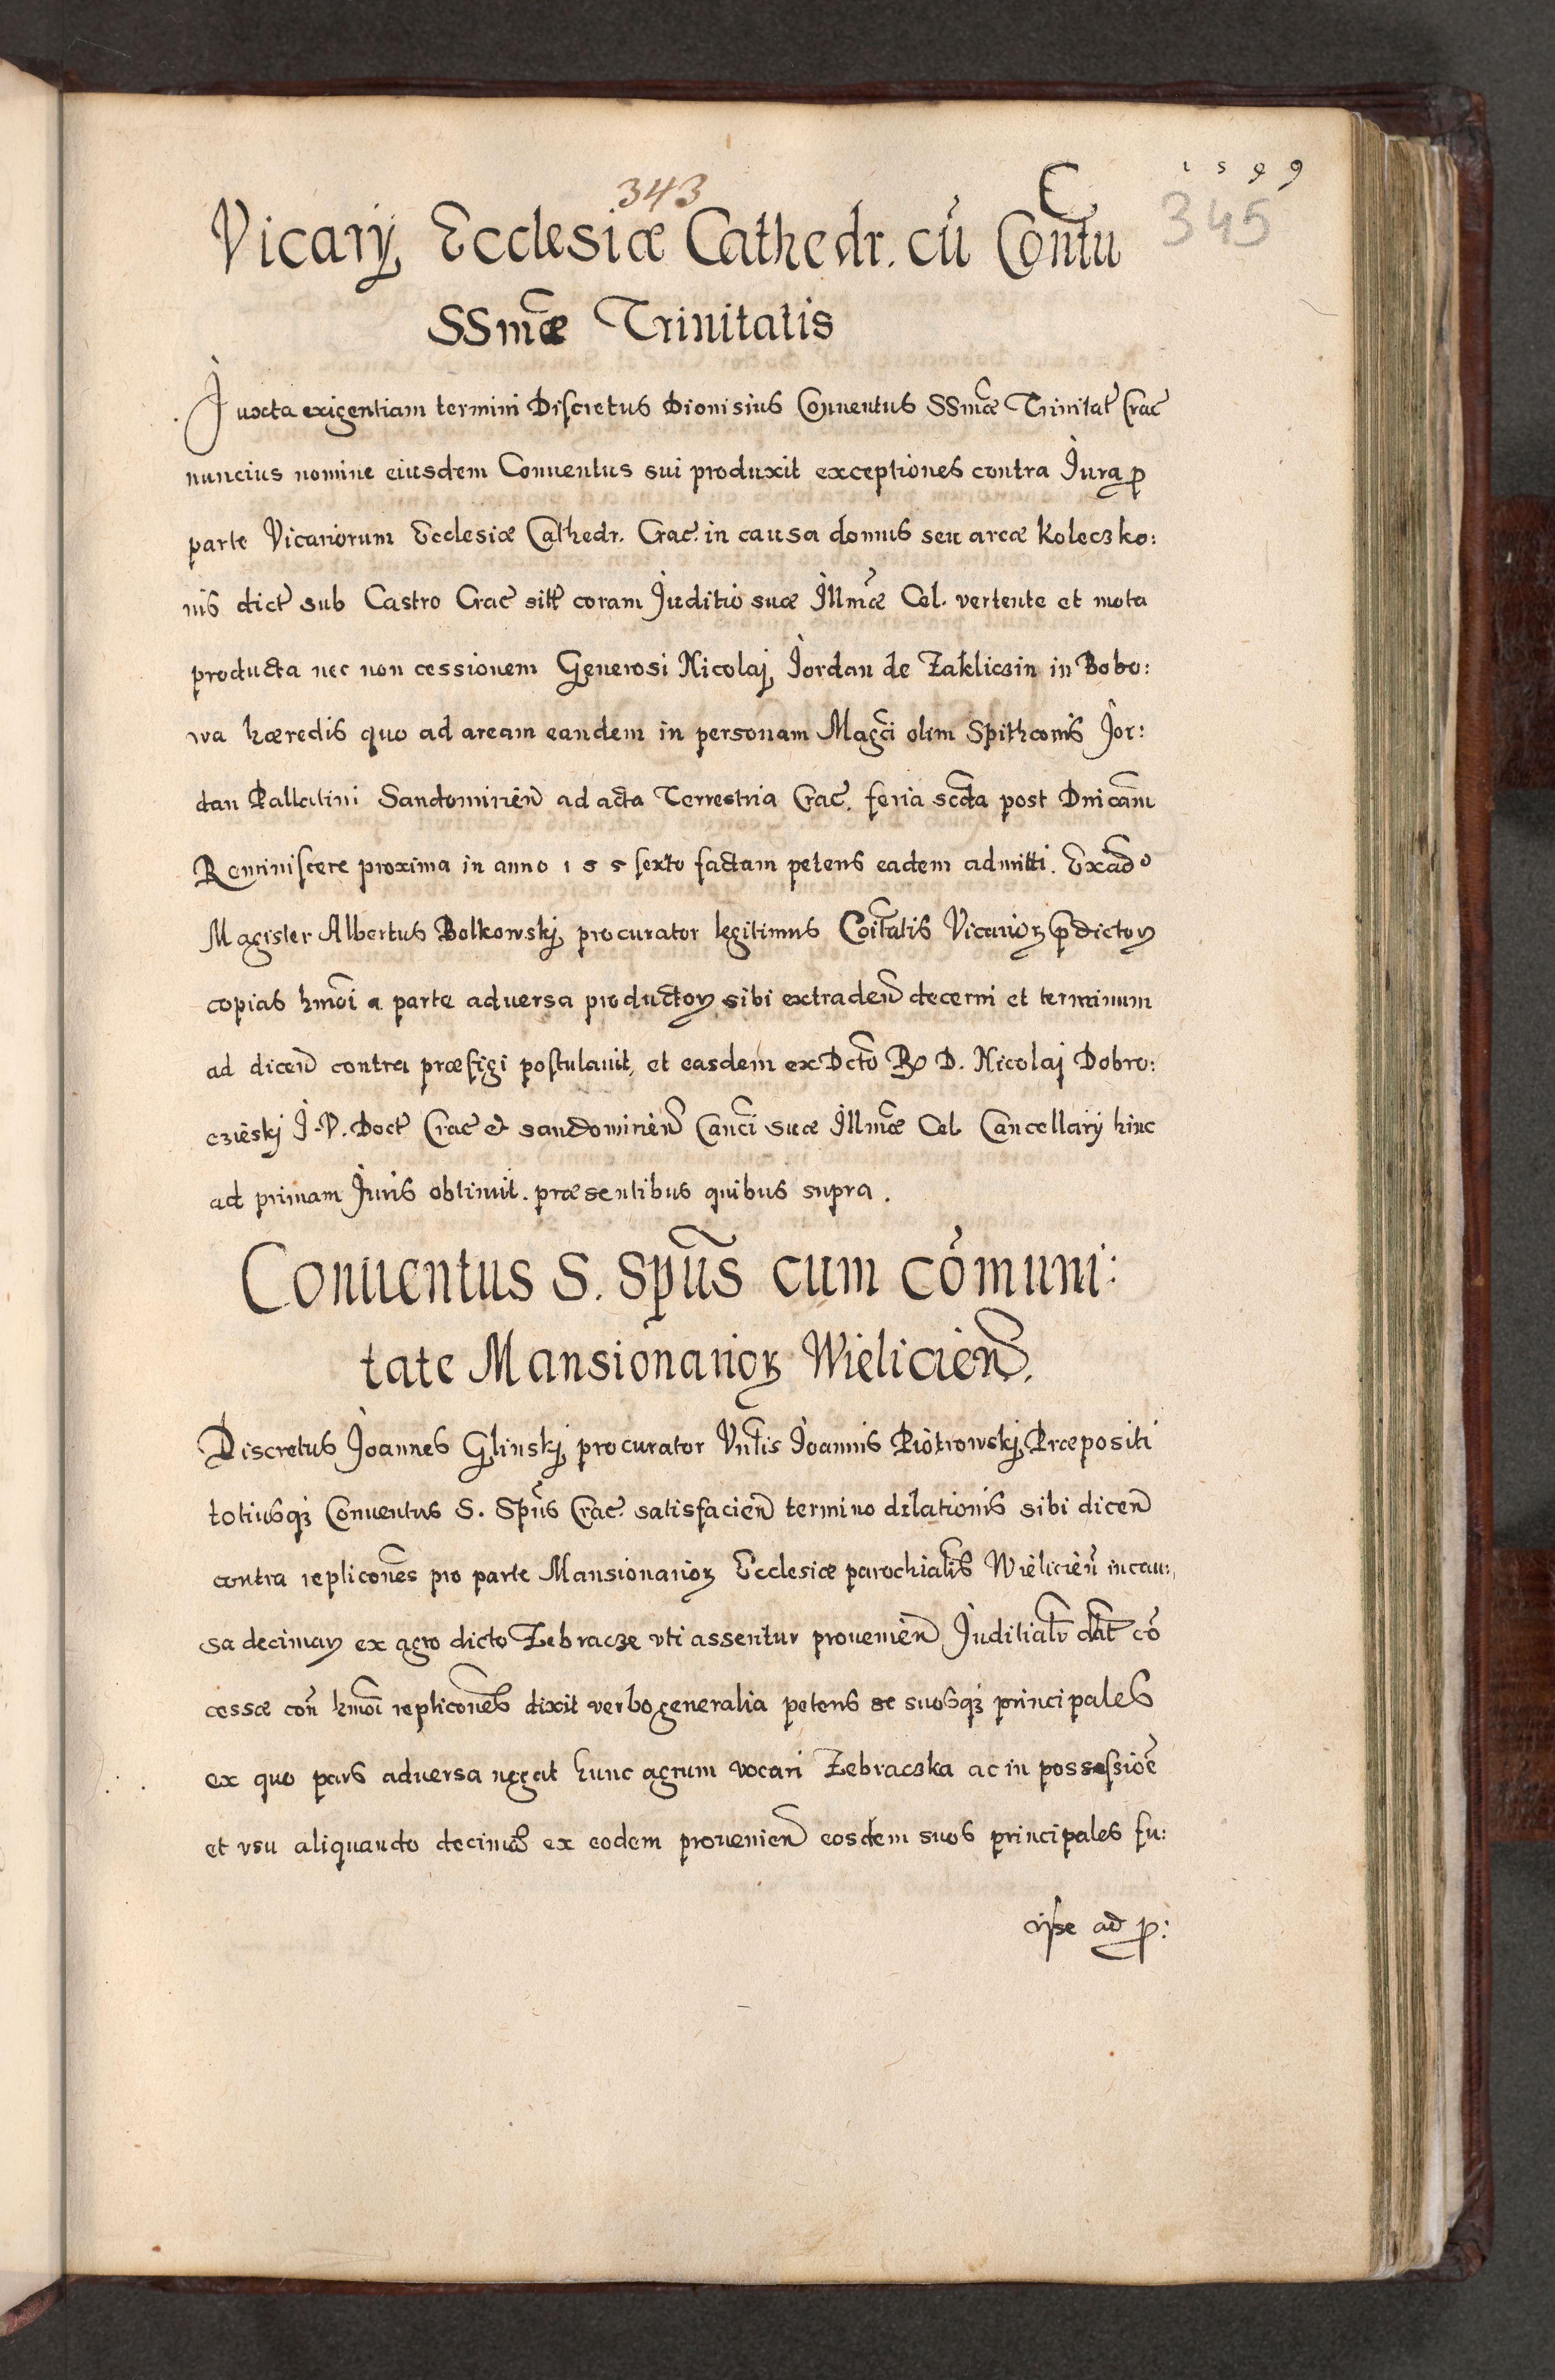 1599
343
345
Vicarÿ Ecclesiæ Cathedr. cũ Conṽtu
SSm̃æ Trinitatis
Juxta exigentiam termini Discretus Dionisius Conuentus SSm̃æ Trinitat̃ Crac̃
nuncius nomine eiusdem Conuentus sui produxit exceptiones contra Jura p̱
parte Vicariorum Ecclesiæ Cathedr. Crac̃. in causa domus seu areæ Koleczko:
nis dict̃ sub Castro Crac̃ sitt̃ coram Juditio suæ Illm̃æ Cel. vertente et mota
producta nec non cessionem Generosi Nicolaj Jordan de Zakliczin in Bobo:
wa hæredis quo ad aream eandem in personam Magc̃i olim Spithconis Jor:
dan Pallatini Sandomirień ad acta Terrestria Crac̃. feria scd̃a post Dnicãm
Reminiscere proxima in anno 155 sexto factam petens eadem admitti. Exad̃o
Magister Albertus Bolkowskj procurator legitimus Coĩtatis Vicarioꝝ p̃dictoꝝ
copias hmõi a parte adversa productoꝝ sibi extradeñ decerni et terminum
ad diceñ contra præfigi postulavit, et easdem ex Dct̃o R̃ D. Nicolaj Dobro:
czieskj J. V. Doct̃ Crac̃ & sandomirień Canc̃i suæ Illm̃æ Cel. Cancellarÿ hinc
ad primam Juris obtinuit. præsentibus quibus supra.
Conuentus S. Spũs cum cõmuni:
tate Mansionarioꝝ Wielicień.
Discretus Joannes Glinskj procurator Vnl̃is Joannis Piotrowskj Præpositi
totiusqꝫ Conuentus S. Spũs Crac̃. satisfacień termino dilationis sibi diceñ
contra replicõnes pro parte Mansionarioꝝ Ecclesiæ parochialis Wielicień in cau:
sa decimaꝝ ex agro dicto Zebracze vti asseritur provenień Juditialr̃ dat̃ cõ
cessæ coñ hmõi replicõnes dixit verbo generalia petens se suosqꝫ principales
ex quo pars adversa negat hunc agrum vocari Zebraczka ac in possessiõe
et vsu aliquando decimas ex eodem provenień eosdem suos principales fu:
isse ad p̱: